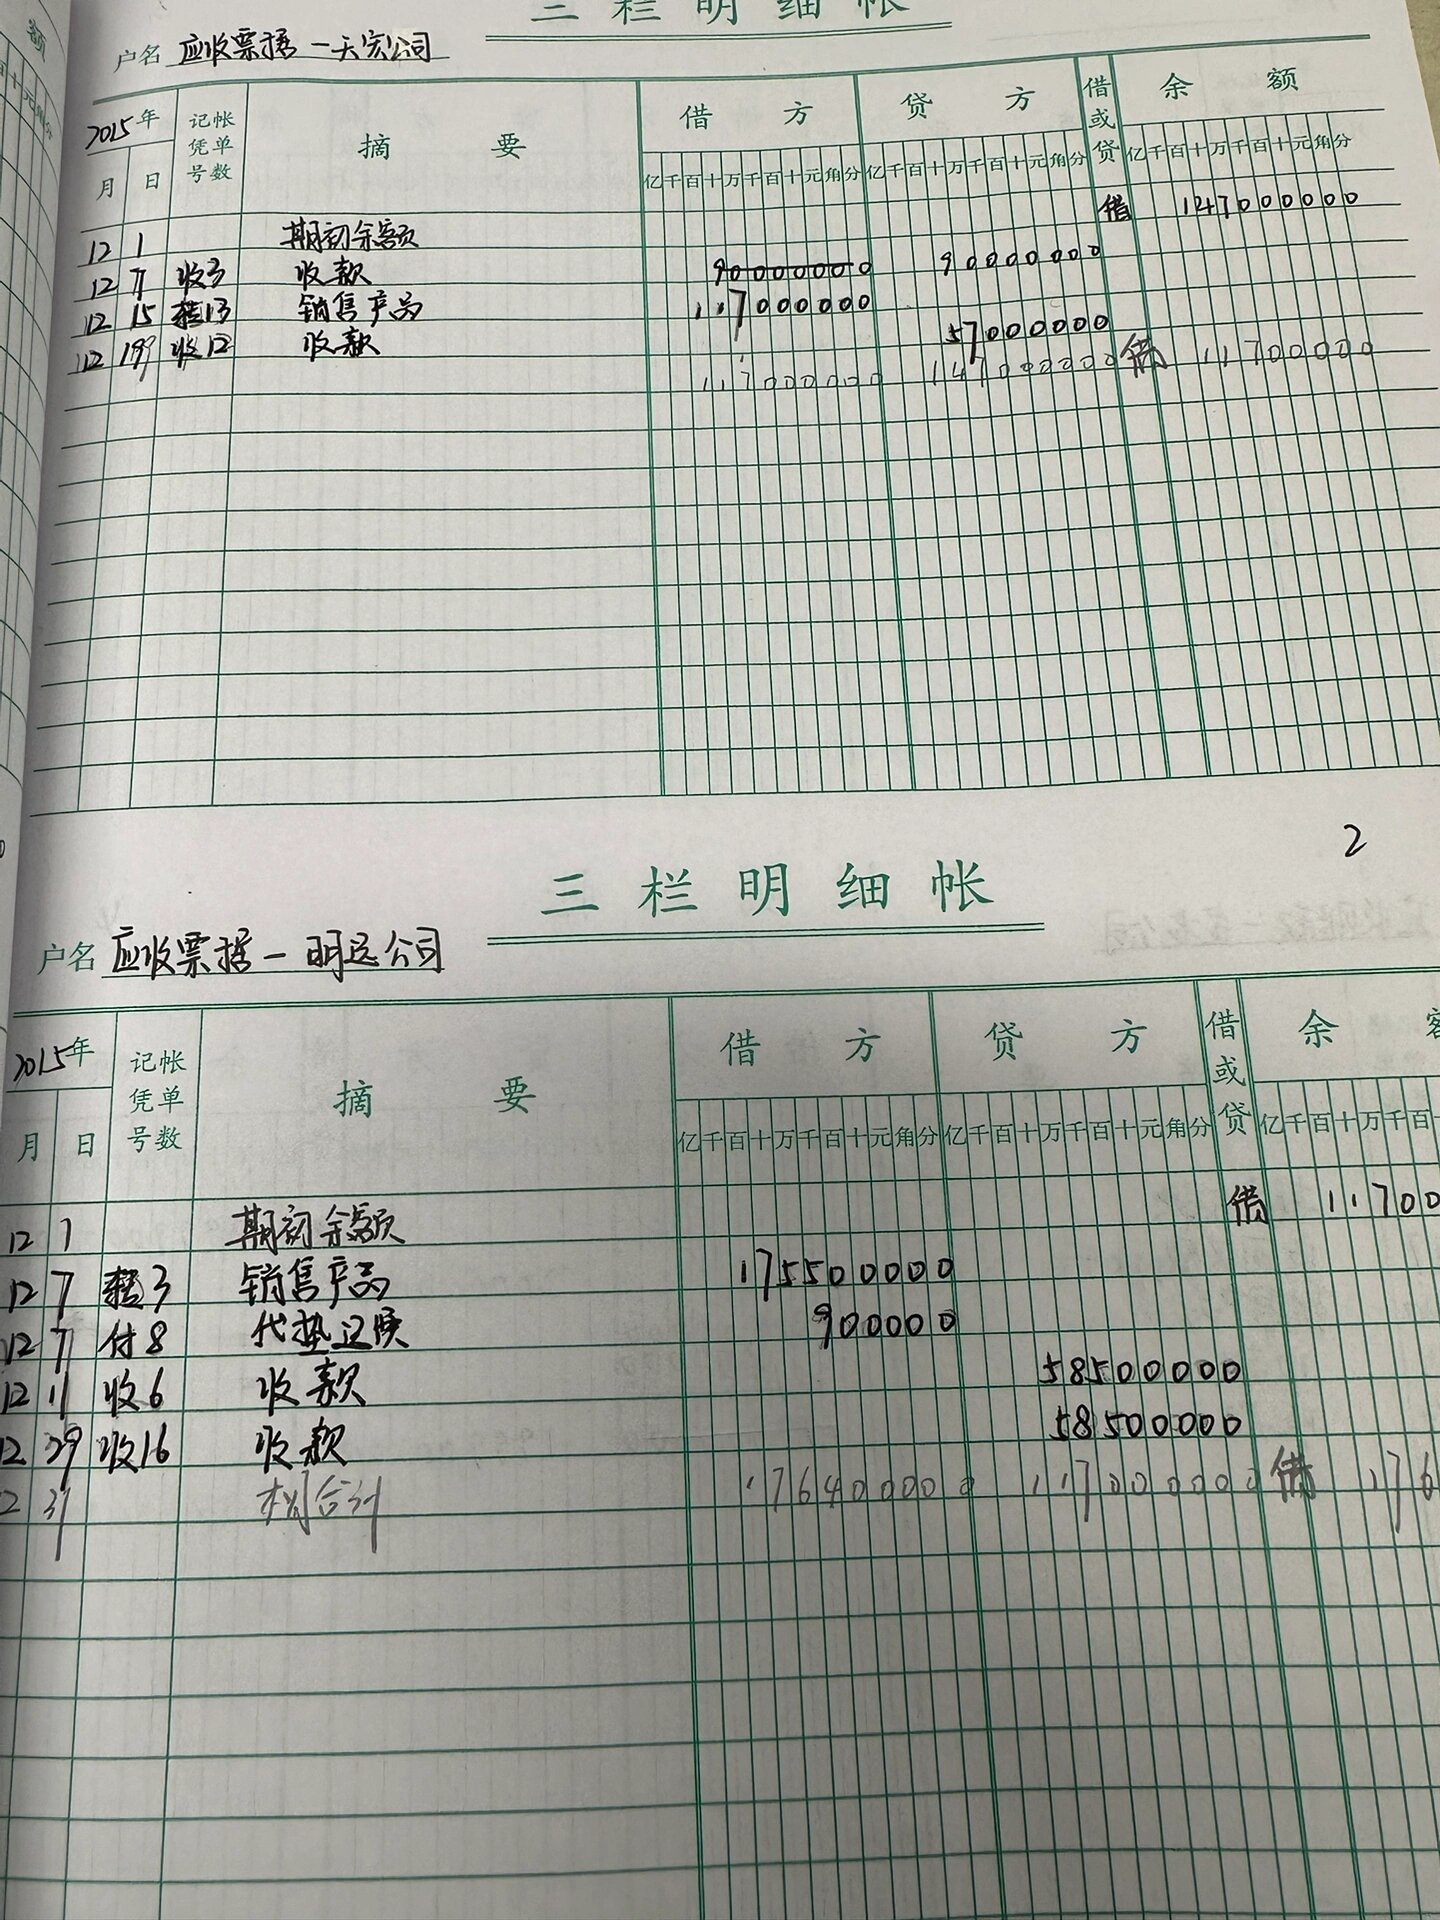 三栏明细帐
户名 应收票据-天宏公司
2015年 记帐凭单号数 摘要 借方 贷方 借或贷 余额
月 日 亿千百十万千百十元角分 亿千百十万千百十元角分 亿千百十万千百十元角分
12 1 期初余额 借 147000000
12 7 收3 收款 90000000 90000000
12 15 转13 销售产品 117000000
12 19 收12 收款 57000000
117000000 147000000 借 11700000
2
三栏明细帐
户名 应收票据-明远公司
2015年 记帐凭单号数 摘要 借方 贷方 借或贷 余额
月 日 亿千百十万千百十元角分 亿千百十万千百十元角分 亿千百十万千百十
12 1 期初余额 借 11700
12 7 转3 销售产品 175500000
12 7 付8 代垫运费 900000
12 11 收6 收款 58500000
12 29 收16 收款 58500000
2 31 本月合计 176400000 117000000 借 176